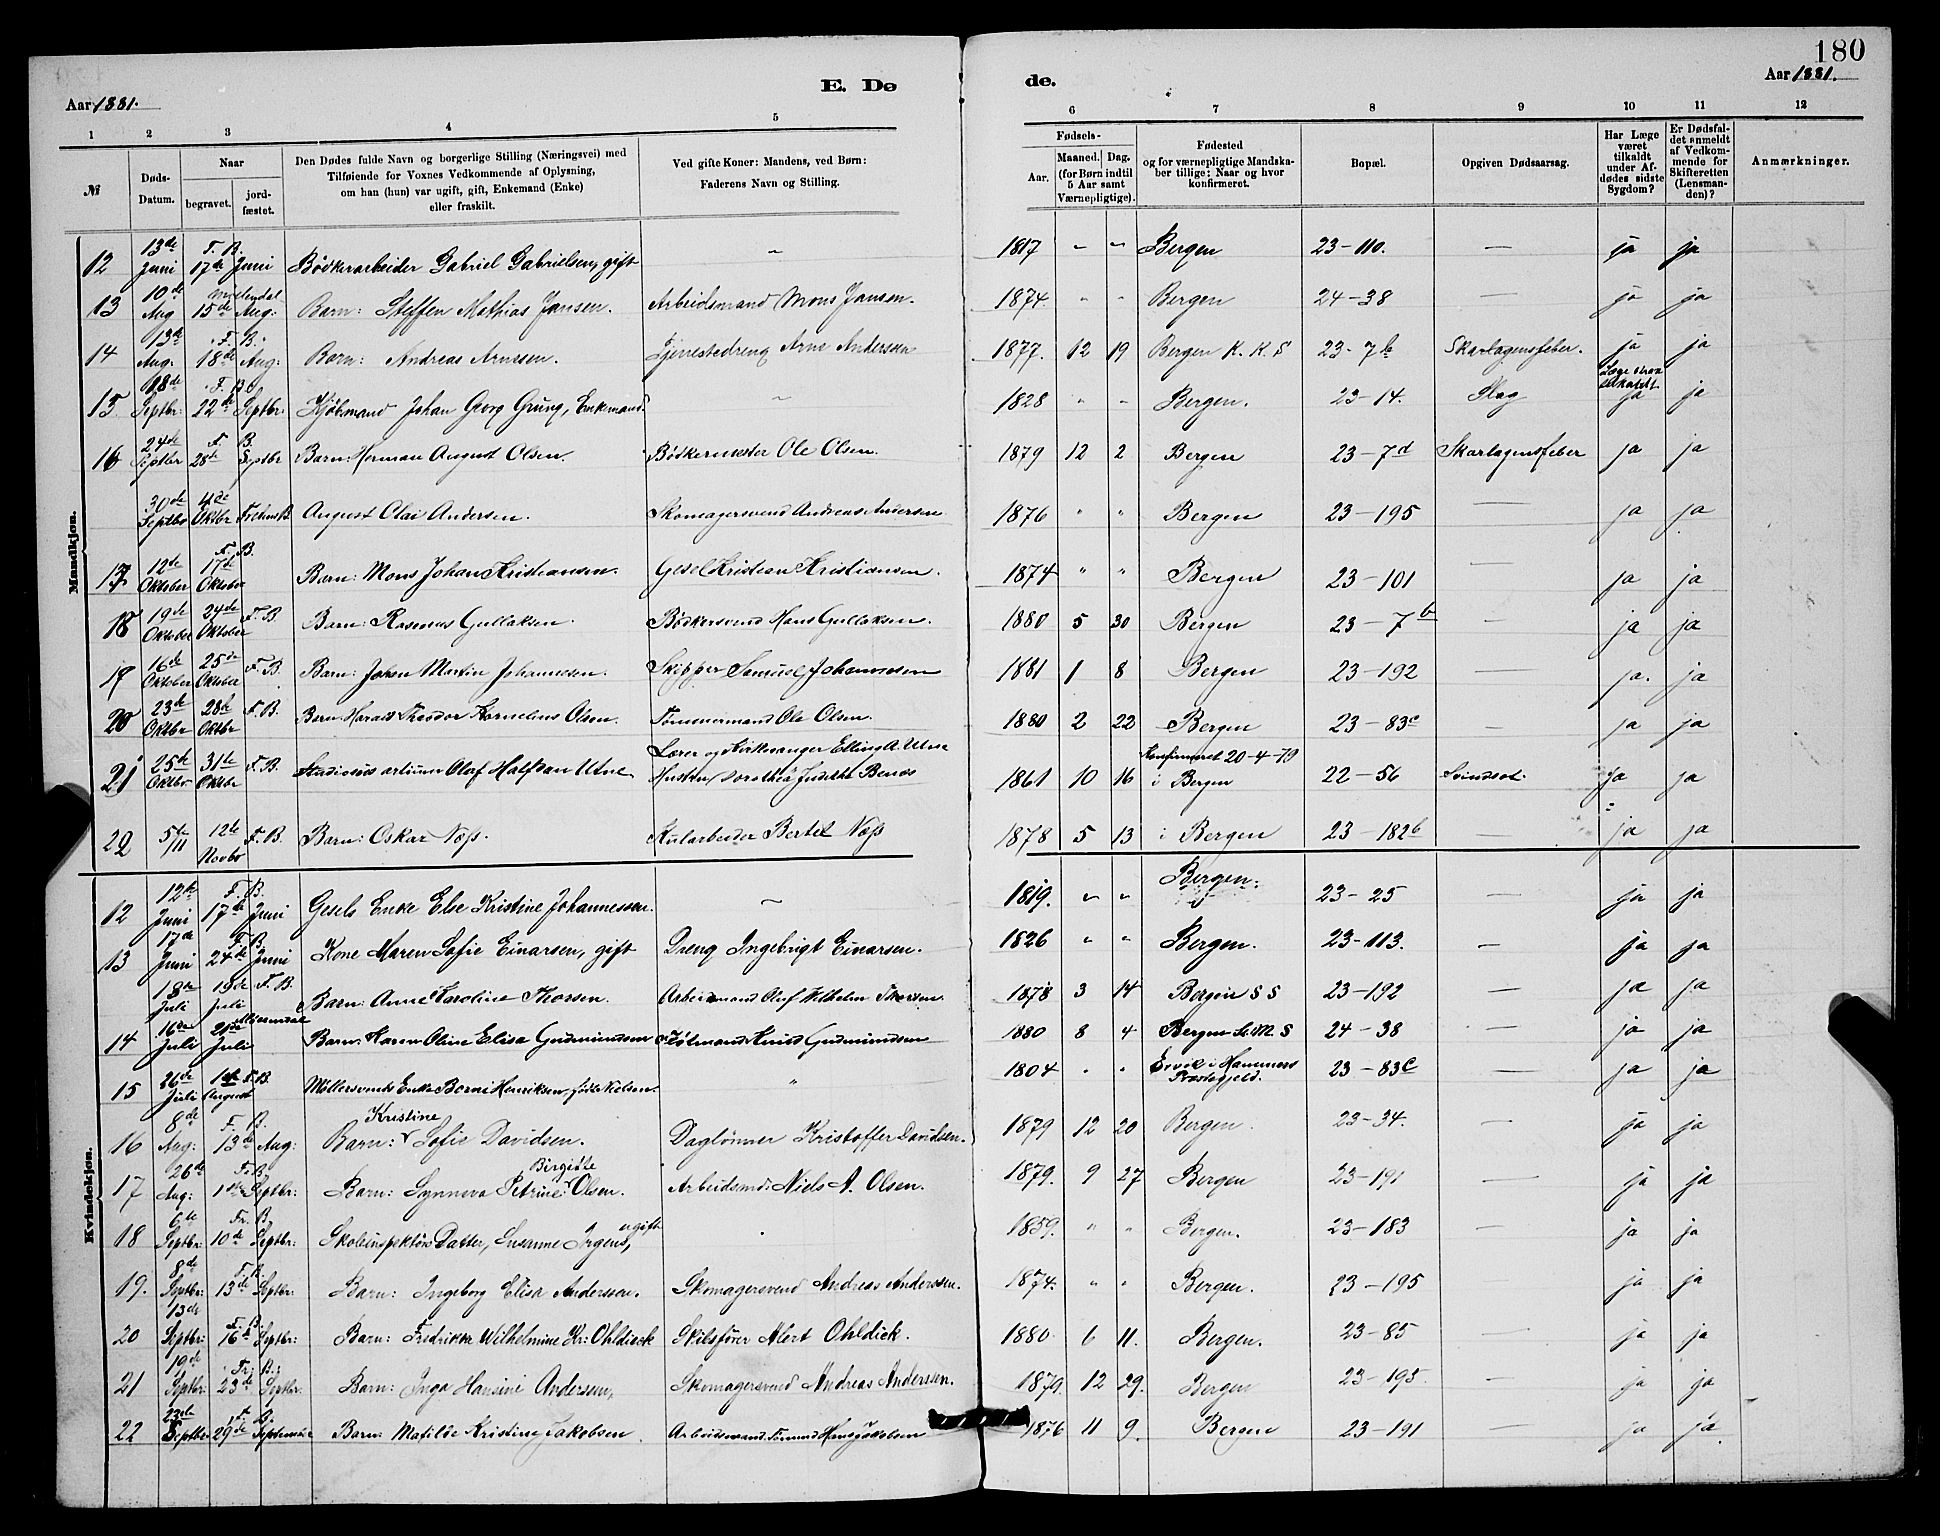 180
Aar 1881.
E. Dø
de.
Aar 1881.
1 2 3 4 5 6 7 8 9 10 11 12
№
Døds-
Datum.
Naar
begravet.
jord-
fæstet.
Den Dødes fulde Navn og borgerlige Stilling (Næringsvei) med
Tilføiende for Voxnes Vedkommende af Oplysning,
om han (hun) var ugift, gift, Enkemand (Enke)
eller fraskilt.
Ved gifte Koner: Mandens, ved Børn:
Faderens Navn og Stilling.
Fødsels-
Aar.
Maaned. Dag.
(for Børn indtil
5 Aar samt
Værnepligtige).
Fødested
og for værnepligtige Mandska-
ber tillige: Naar og hvor
konfirmeret.
Bopæl.
Opgiven Dødsaarsag.
Har Læge
været
tilkaldt
under Af-
dødes sidste
Sygdom?
Er Dødsfal-
det anmeldt
af Vedkom-
mende for
Skifteretten
(Lensman-
den)?
Anmærkninger.
Mandkjøn.
12 13de Juni F. B. 17de Juni Bødkerarbeider Gabriel Gabrielsen, gift ~ 1817 " " Bergen 23-110. — ja ja
13 10de Aug Møllendal 15de Aug: Barn: Steffen Mathias Jansen. Arbeidsmand Mons Jansen. 1874. " " Bergen 24-38 — ja ja
14 13de Aug. F. B. 18de Aug: Barn: Andreas Arnesen. Tjenestedreng Arne Andersen 1877. 12 19 Bergen K. K. S 23-7b Skarlagensfeber. ja ja
15 18de Septbr: F. B. 22de Septbr: Kjøbmand Johan Georg Grung, Enkemand. ~ 1828 " " Bergen. 23-14. Slag Læge strax tilkaldt ja ja
16 24de Septbr F. B. 28de Septbr Barn: Herman August Olsen. Bødkermester Ole Olsen. 1879 12 2 Bergen 23-7d Skarlagensfeber ja ja
30de Septbr 4de Oktbr August Olai Andersen. Skomagersvend Andreas Andersen 1876 " " Bergen 23-195 — ja ja
17 12de Oktober F. B. 17de Oktober Barn: Mons Johan Kristiansen. Gesel Kristian Kristiansen. 1874 " " Bergen 23-101 — ja ja
18 19de Oktober 24de Oktober F. B. Barn: Rasmus Gullaksen. Bødkersvend Hans Gullaksen. 1880 5 30 Bergen 23-7b — ja ja
19 16de Oktober 25de Oktober F. B. Barn: Johan Martin Johannesen. Skipper Samuel Johannesen 1881 1 8 Bergen 23-192 — ja. ja
20 23de Oktbr 28de Oktbr F. B. Barn: Harald Theodor Kornelius Olsen. Tømmermand Ole Olsen. 1880 2 22 Bergen 23-83c — ja ja
21 25de Oktbr 31te Oktbr F. B. Studiosus artium Olaf Halfdan Utne Lærer og Kirkesanger Elling A. Utne Hustru Dorothea 1861 10 16 Konfirmeret 20-4-79 i Bergen 22-56 Svindsot. ja ja
22 5te/11 12te Novbr F. B. Barn: Oskar Næss. Kularbeider Bertel Næss 1878 5 13 i Bergen 23-182b — ja ja
Kvindekjøn.
12 12te Juni F. B. 17de Juni Gesels Enke Else Kristine Johannessen. ~ 1819. " " Bergen. 23-25 — ja ja
13 17de Juni F. B. 24de Juni Kone Maren Sofie Einarsen, gift Dreng Ingebrigt Einarsen. 1826 " " Bergen. 23-113. — ja ja
18de Juli 19de Juli F. B. Barn: Anne Karoline Thorsen. Arbeidsmand Oluf Vilhelm Thorsen. 1878 3 14 Bergen S S 23-192 — ja ja
14 16de Juli 21de Juli Møllendal Barn: Karen Oline Elisa Gudmundsen Fløtmand Knud Gudmundsen 1880 8 4 Bergen St. M. S 24-38 — ja ja
15 26de Juli 1ste August F. B. Møllersvends Enke Borni Henriksen, født Nielsen. " 1804 " " Ervik i Hammers Præstegjeld. 23-83c — ja ja
16 8de Aug: F. B. 13de Aug: Barn: Kristine Sofie Davidsen. Dagløнner Kristoffer Davidsen. 1879 12 20 Bergen. 23-34. — ja ja
17 26de Aug: F. B. 1ste Septbr: Barn: Synneva Petrine Birgitte Olsen. Arbeidsmd: Niels A. Olsen. 1879. 9 27 Bergen 23-191 — ja ja
18 6te Septbr: Fr. B. 10de Septbr: Skoleinspektørs Datter, Susanne Irgens, ugift " 1859. " " Bergen. 23-183 — ja ja
19. 8de Septbr: F. B. 13de Septbr: Barn: Ingeborg Elisa Anderssen. Skomagersvend Andreas Anderssen. 1874. " " Bergen. 23-195 — ja ja
20 13de Septbr: F. B. 16de Septbr: Barn: Fredrikke Wilhelmine Kr: Ohldieck Skibsfører Alert Ohldick. 1880. 6 11. Bergen. 23-85 — ja ja
21 19de Septbr: Fr: B: 23de Septbr: Barn: Inga Hansine Andersen, Skomagersvend Andreas Anderssen. 1879. 12 29. Bergen 23-195. — ja ja
22 23de Septbr 29de September Barn: Matilde Kristine Jakobsen. Arbeidsmand Hans Jakobsen 1876 11 9. Bergen 23-191 — ja ja.